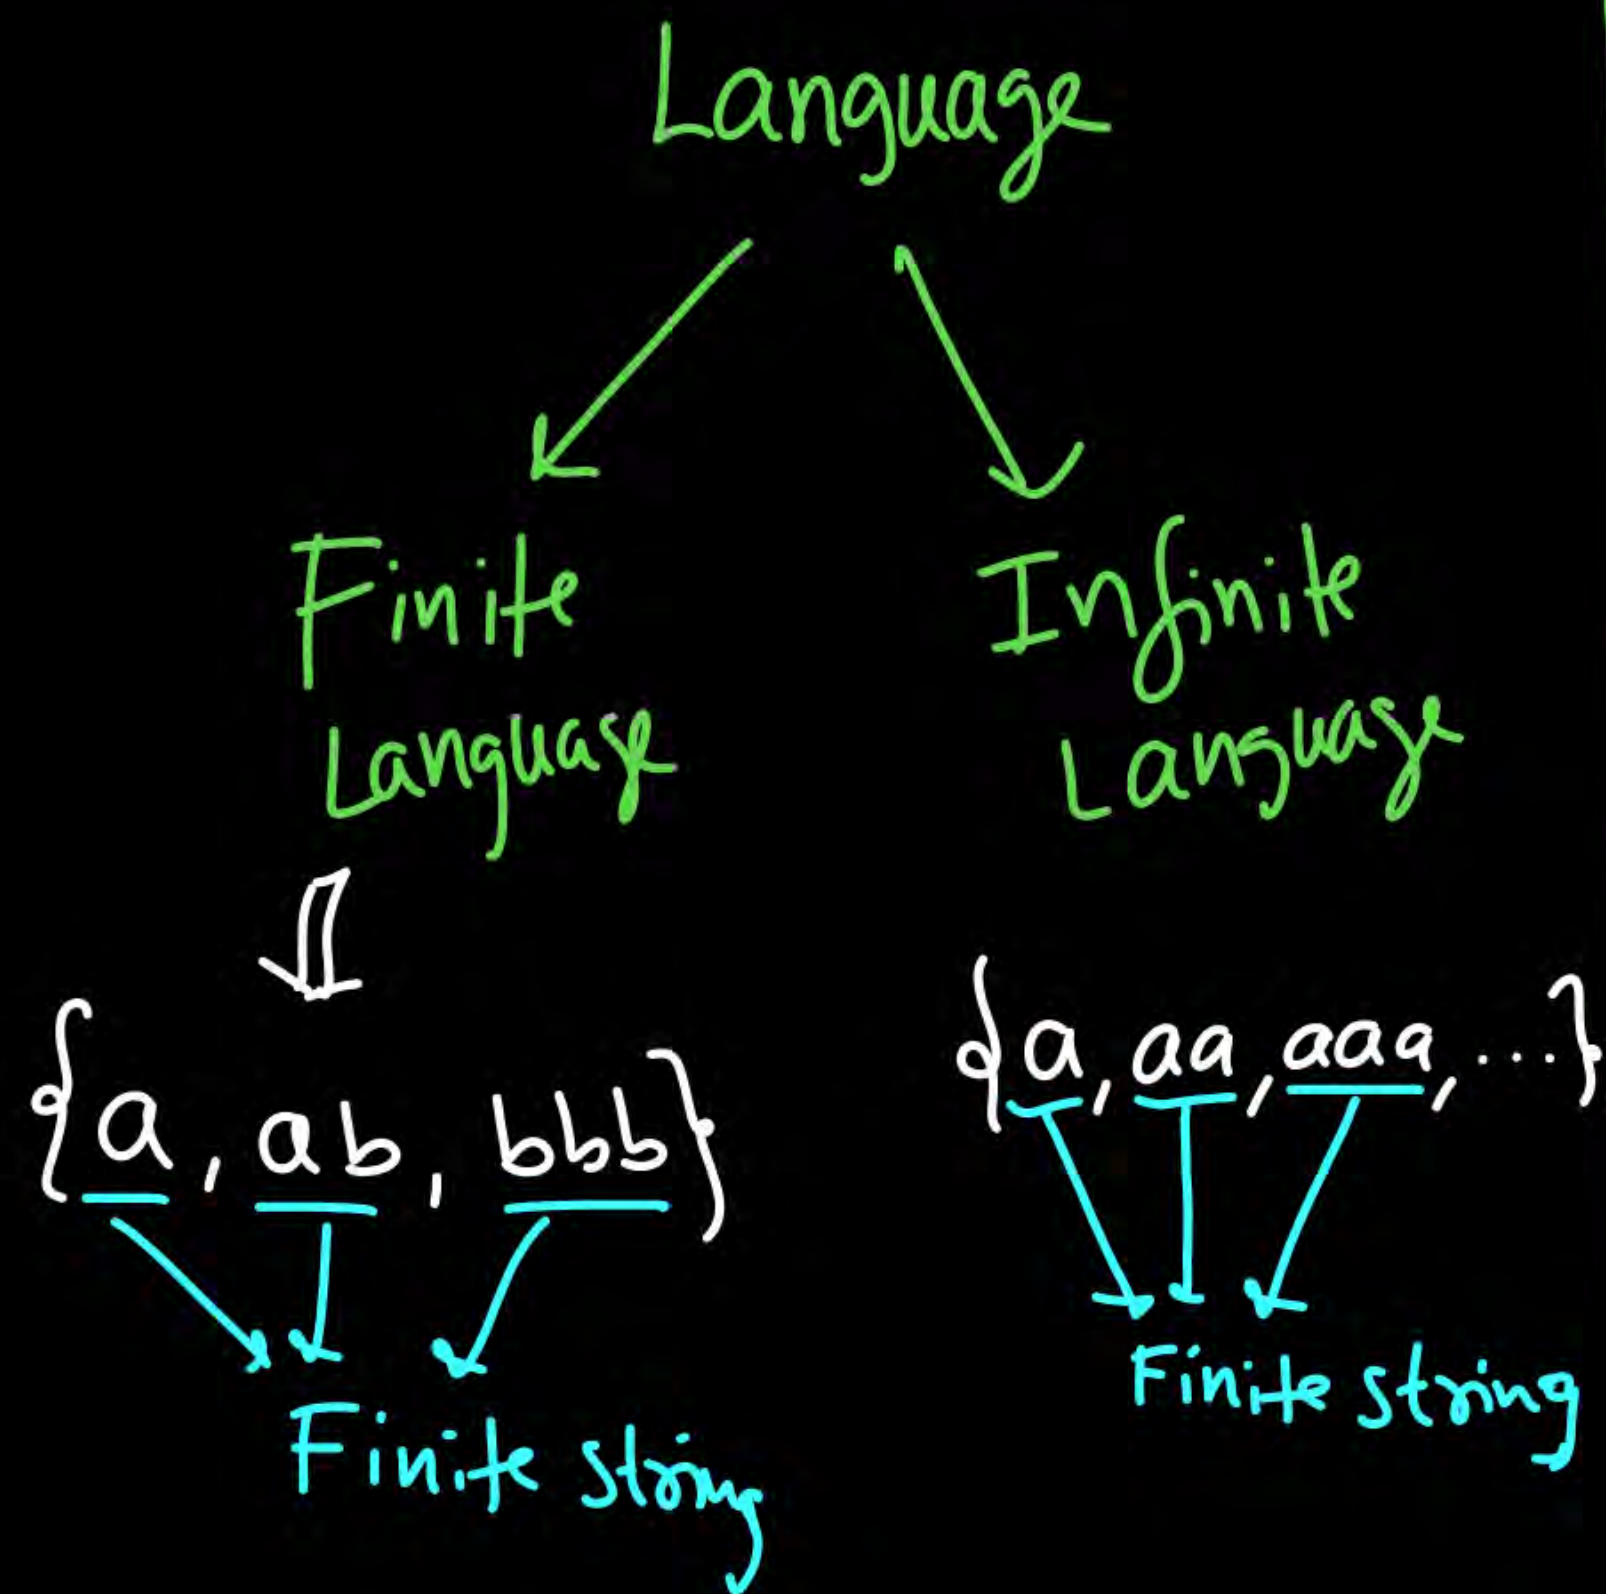 Language
Finite
Language
Infinite
Language
{a, ab, bbb}
Finite string
{a, aa, aaa, ...}
Finite string